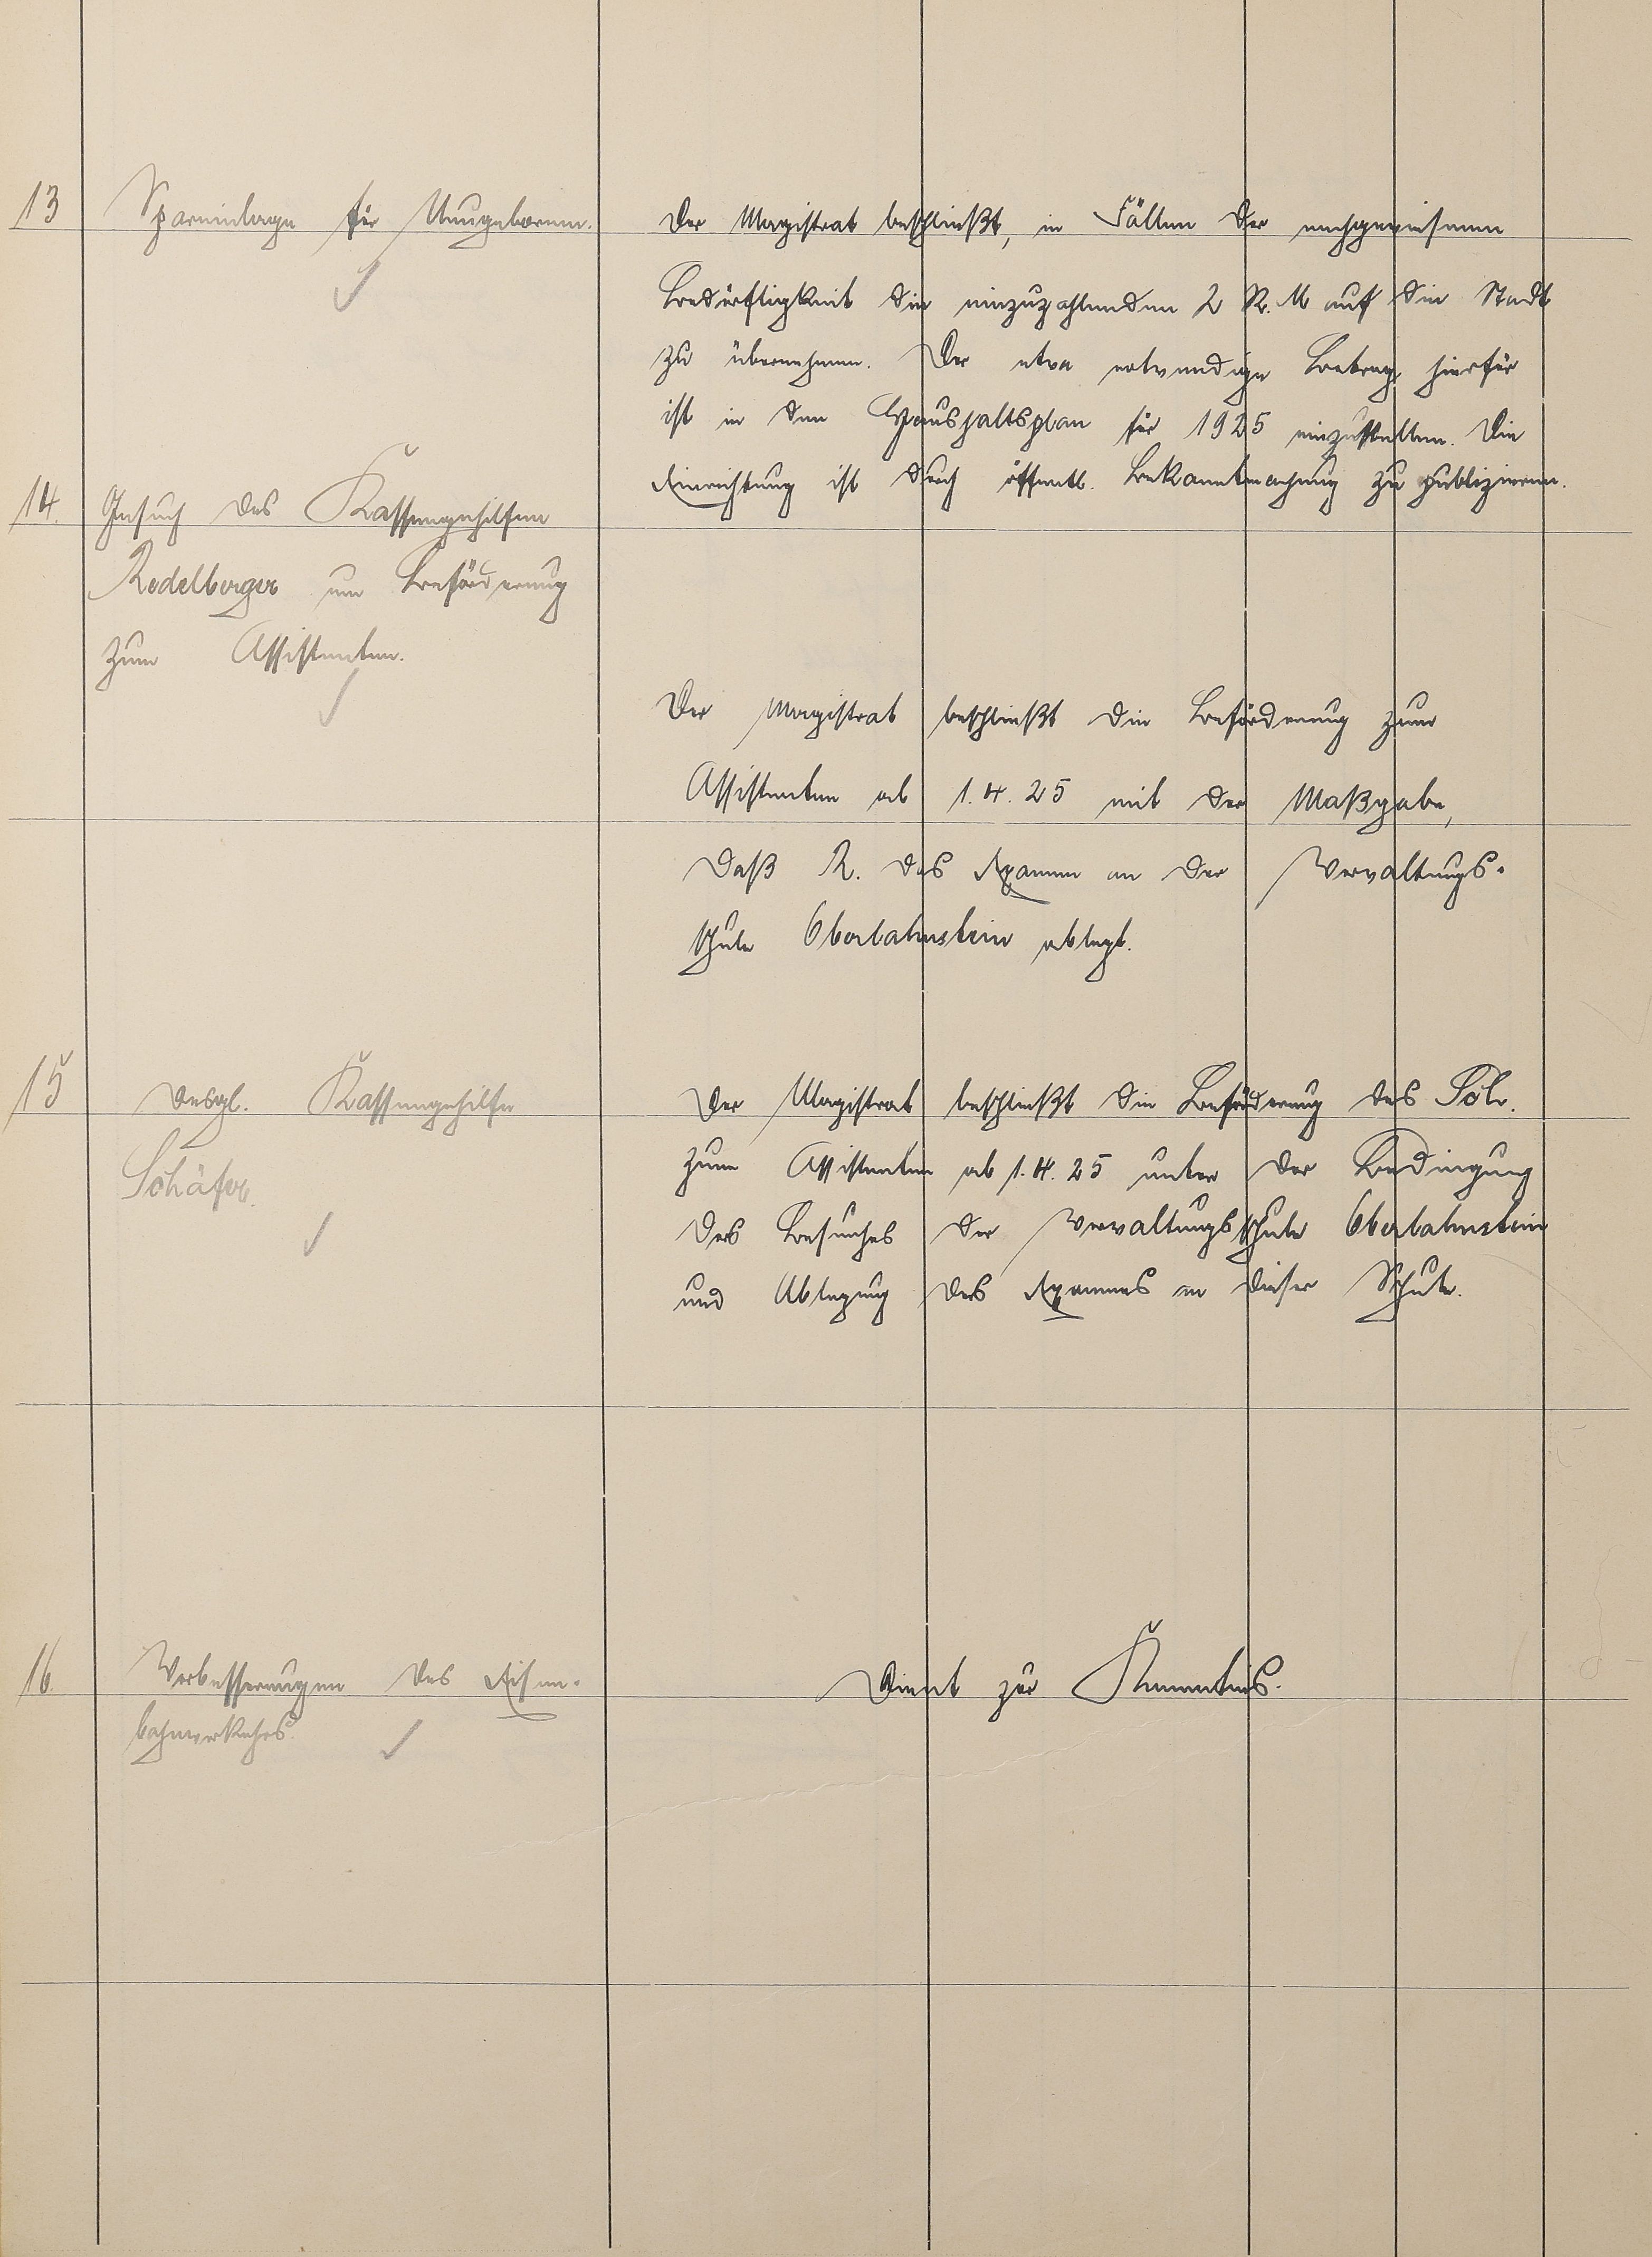 13
Spareinlage für Neugeborene.
Der Magistrat beschließt, in Fällen der nachgewiesenen
Bedürftigkeit die einzuzahlenden 2 R. M auf die Stadt
zu übernehmen. Der etwa notwendige Betrag hierfür
ist in den Haushaltsplan für 1925 einzustellen. Die
Einrichtung ist durch öffentl. Bekanntmachung zu publizieren.
14.
Gesuch des Kassengehilfen
Rodelberger um Beförderung
zum Assistenten.
Der Magistrat beschließt die Beförderung zum
Assistenten ab 1.4.25 mit der Maßgabe,
daß R. das Examen an der Verwaltungs-
schule Oberlahnstein ablegt.
15
Desgl. Kassengehilfe
Schäfer.
Der Magistrat beschließt die Beförderung des Sch.
zum Assistenten ab 1.4.25 unter der Bedingung
des Besuches der Verwaltungsschule Oberlahnstein
und Ablegung des Examens an dieser Schule.
16.
Verbesserungen des Eisen-
bahnverkehrs.
Dient zur Kenntnis.